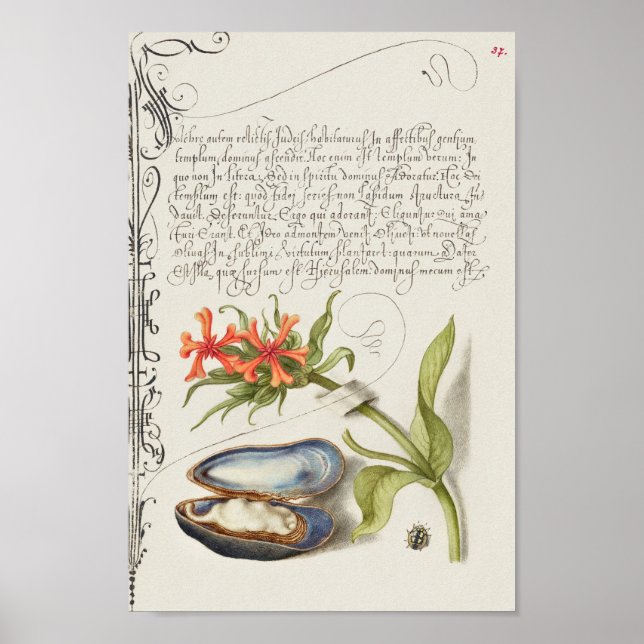 37.
Pulchre autem relictis Judeis, habitaturus In affectibus gentium,
templum dominus ascendit. Hoc enim est templum verum: In
quo non In litera, Sed in spiritu dominus Adoratur. Hoc Dei
templum est: quod fidei series non Lapidum structura fun
davit. Deseruntur Ergo qui adorant: Eliguntur qui ama
turi Erant. Et Ideo ad montem venit Oliveti: ut novellas
Olivas In sublimi virtutum plantaret: quarum Mater
Est Illa, quae sursum est Hierusalem: dominus mecum est